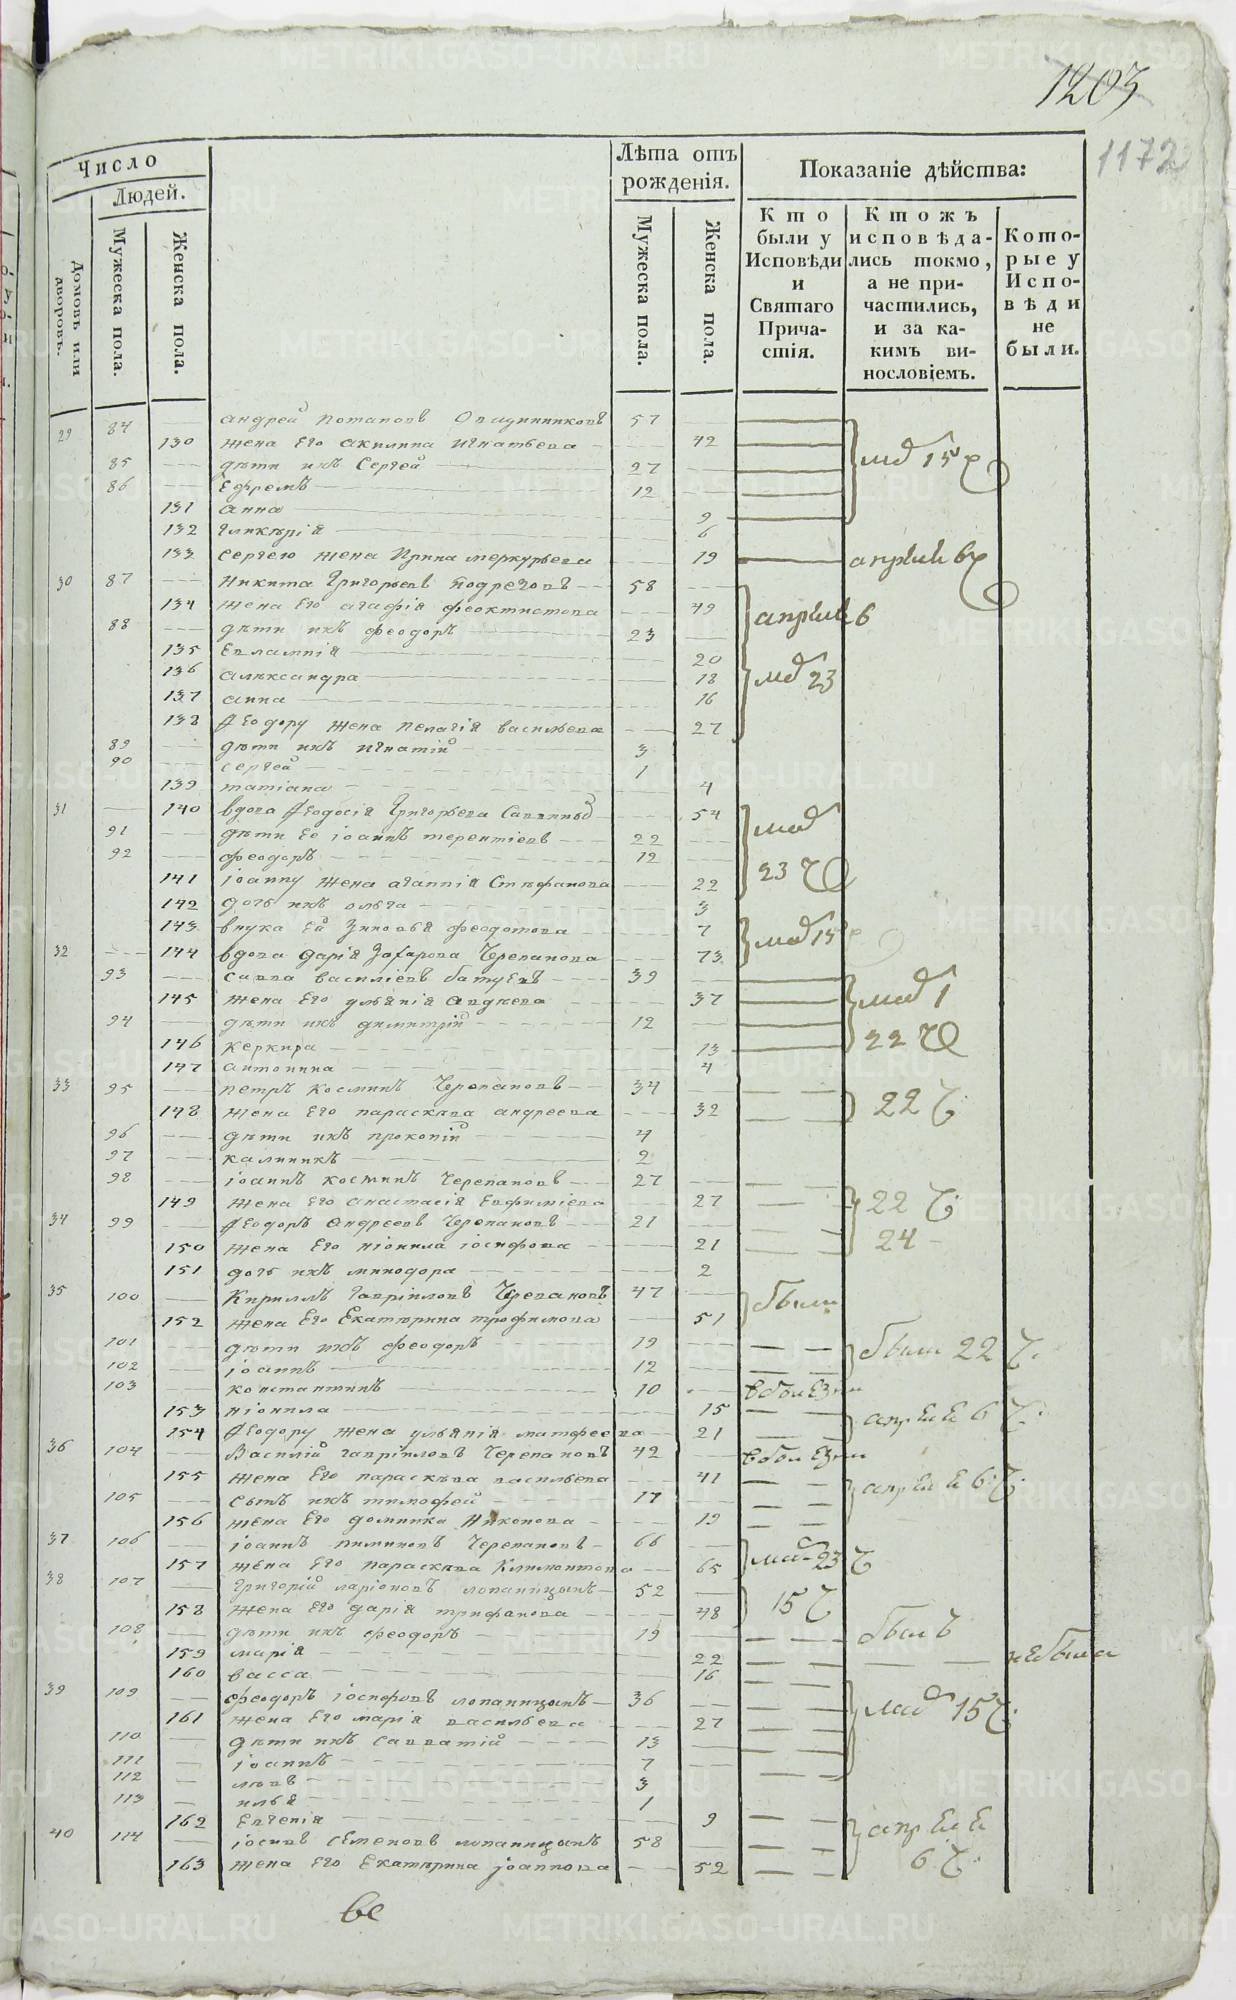 1203
1172
Число
Людей.
Домовъ или дворовъ.
Мужеска пола.
Женска пола.
Лѣта отъ рожденія.
Мужеска пола.
Женска пола.
Показаніе дѣйства:
Кто были у Исповѣди и Святаго Причастія.
Ктожъ исповѣдались токмо, а не причастились, и за какимъ винословіемъ.
Которые у Исповѣди не были.
29 84 андрей Потаповъ Овчинниковъ 57
130 жена Его акилина Игнатьева 42
85 дѣти ихъ Сергей 27 маія 15
86 Ефремъ 12
131 анна 9
132 гликерія 6
133 Сергею жена Ирина меркурьева 19 апрѣля 6
30 87 Никита Григорьевъ Подрезовъ 58
134 жена Его агафія феоктистова 49 апрѣля 6
88 дѣти ихъ феодоръ 23
135 Евлампія 20
136 александра 18 маія 23
137 анна 16
138 Феодору жена пелагія васильева 27
89 дѣти ихъ игнатій 3
90 сергей 1
139 татіана 4
31 140 вдова Феодосія Григорьева 54
91 дѣти Ее іоаннъ терентіевъ 22 маія
92 феодоръ 12 23
141 іоанну жена агаппія Стефанова 22
142 дочь ихъ ольга 3
143 внука Ей Зиновья феодотова 7 маія 15
32 144 вдова дарія Захарова Черепанова 73
93 савва василіевъ батуевъ 39
145 жена Его ульянія Авдеева 37 маія 1
94 дѣти ихъ димитрій 12
146 Керкира 13 22
147 антонина 4
33 95 петръ Косминъ Черепановъ 34
148 жена Его параскева андреева 32 22
96 дѣти ихъ прокопій 4
97 калинникъ 2
98 іоаннъ косминъ Черепановъ 27
149 жена Его анастасія Евфиміева 27 22
34 99 Феодоръ Андреевъ Черепановъ 21
150 жена Его ніонила іосифова 21 24
151 дочь ихъ минодора 2
35 100 Кириллъ гавріиловъ Черепановъ 47 были
152 жена Его Екатерина трофимова 51
101 дѣти ихъ феодоръ 19 были 22
102 іоаннъ 12
103 константинъ 10 в болезни
153 ніонила 15 апреля 6
154 Феодору жена ульянія матфеева 21
36 104 Василій гавріиловъ Черепановъ 42 в болезни
155 жена Его параскева васильева 41 апреля 6
105 сынъ ихъ тимофей 17
156 жена Его домника Никонова 19
37 106 іоаннъ пиминовъ Черепановъ 66
157 жена Его параскева Климонтова 65 маія 23
38 107 Григорій ларіоновъ лопаницынъ 52
158 жена Его дарія трифанова 48 15
108 дѣти ихъ феодоръ 19 былъ
159 марія 22 не была
160 васса 16
39 109 феодоръ іосифовъ лопаницынъ 36
161 жена Его марія васильева 27 маія 15
110 дѣти ихъ Савватій 13
111 іоаннъ 7
112 левъ 3
113 илья 1
162 Евгенія 9 апреля
40 114 іосифъ Семеновъ лопаницынъ 58
163 жена Его Екатерина іоаннова 52 6
ве
METRIKI.GASO-URAL.RU